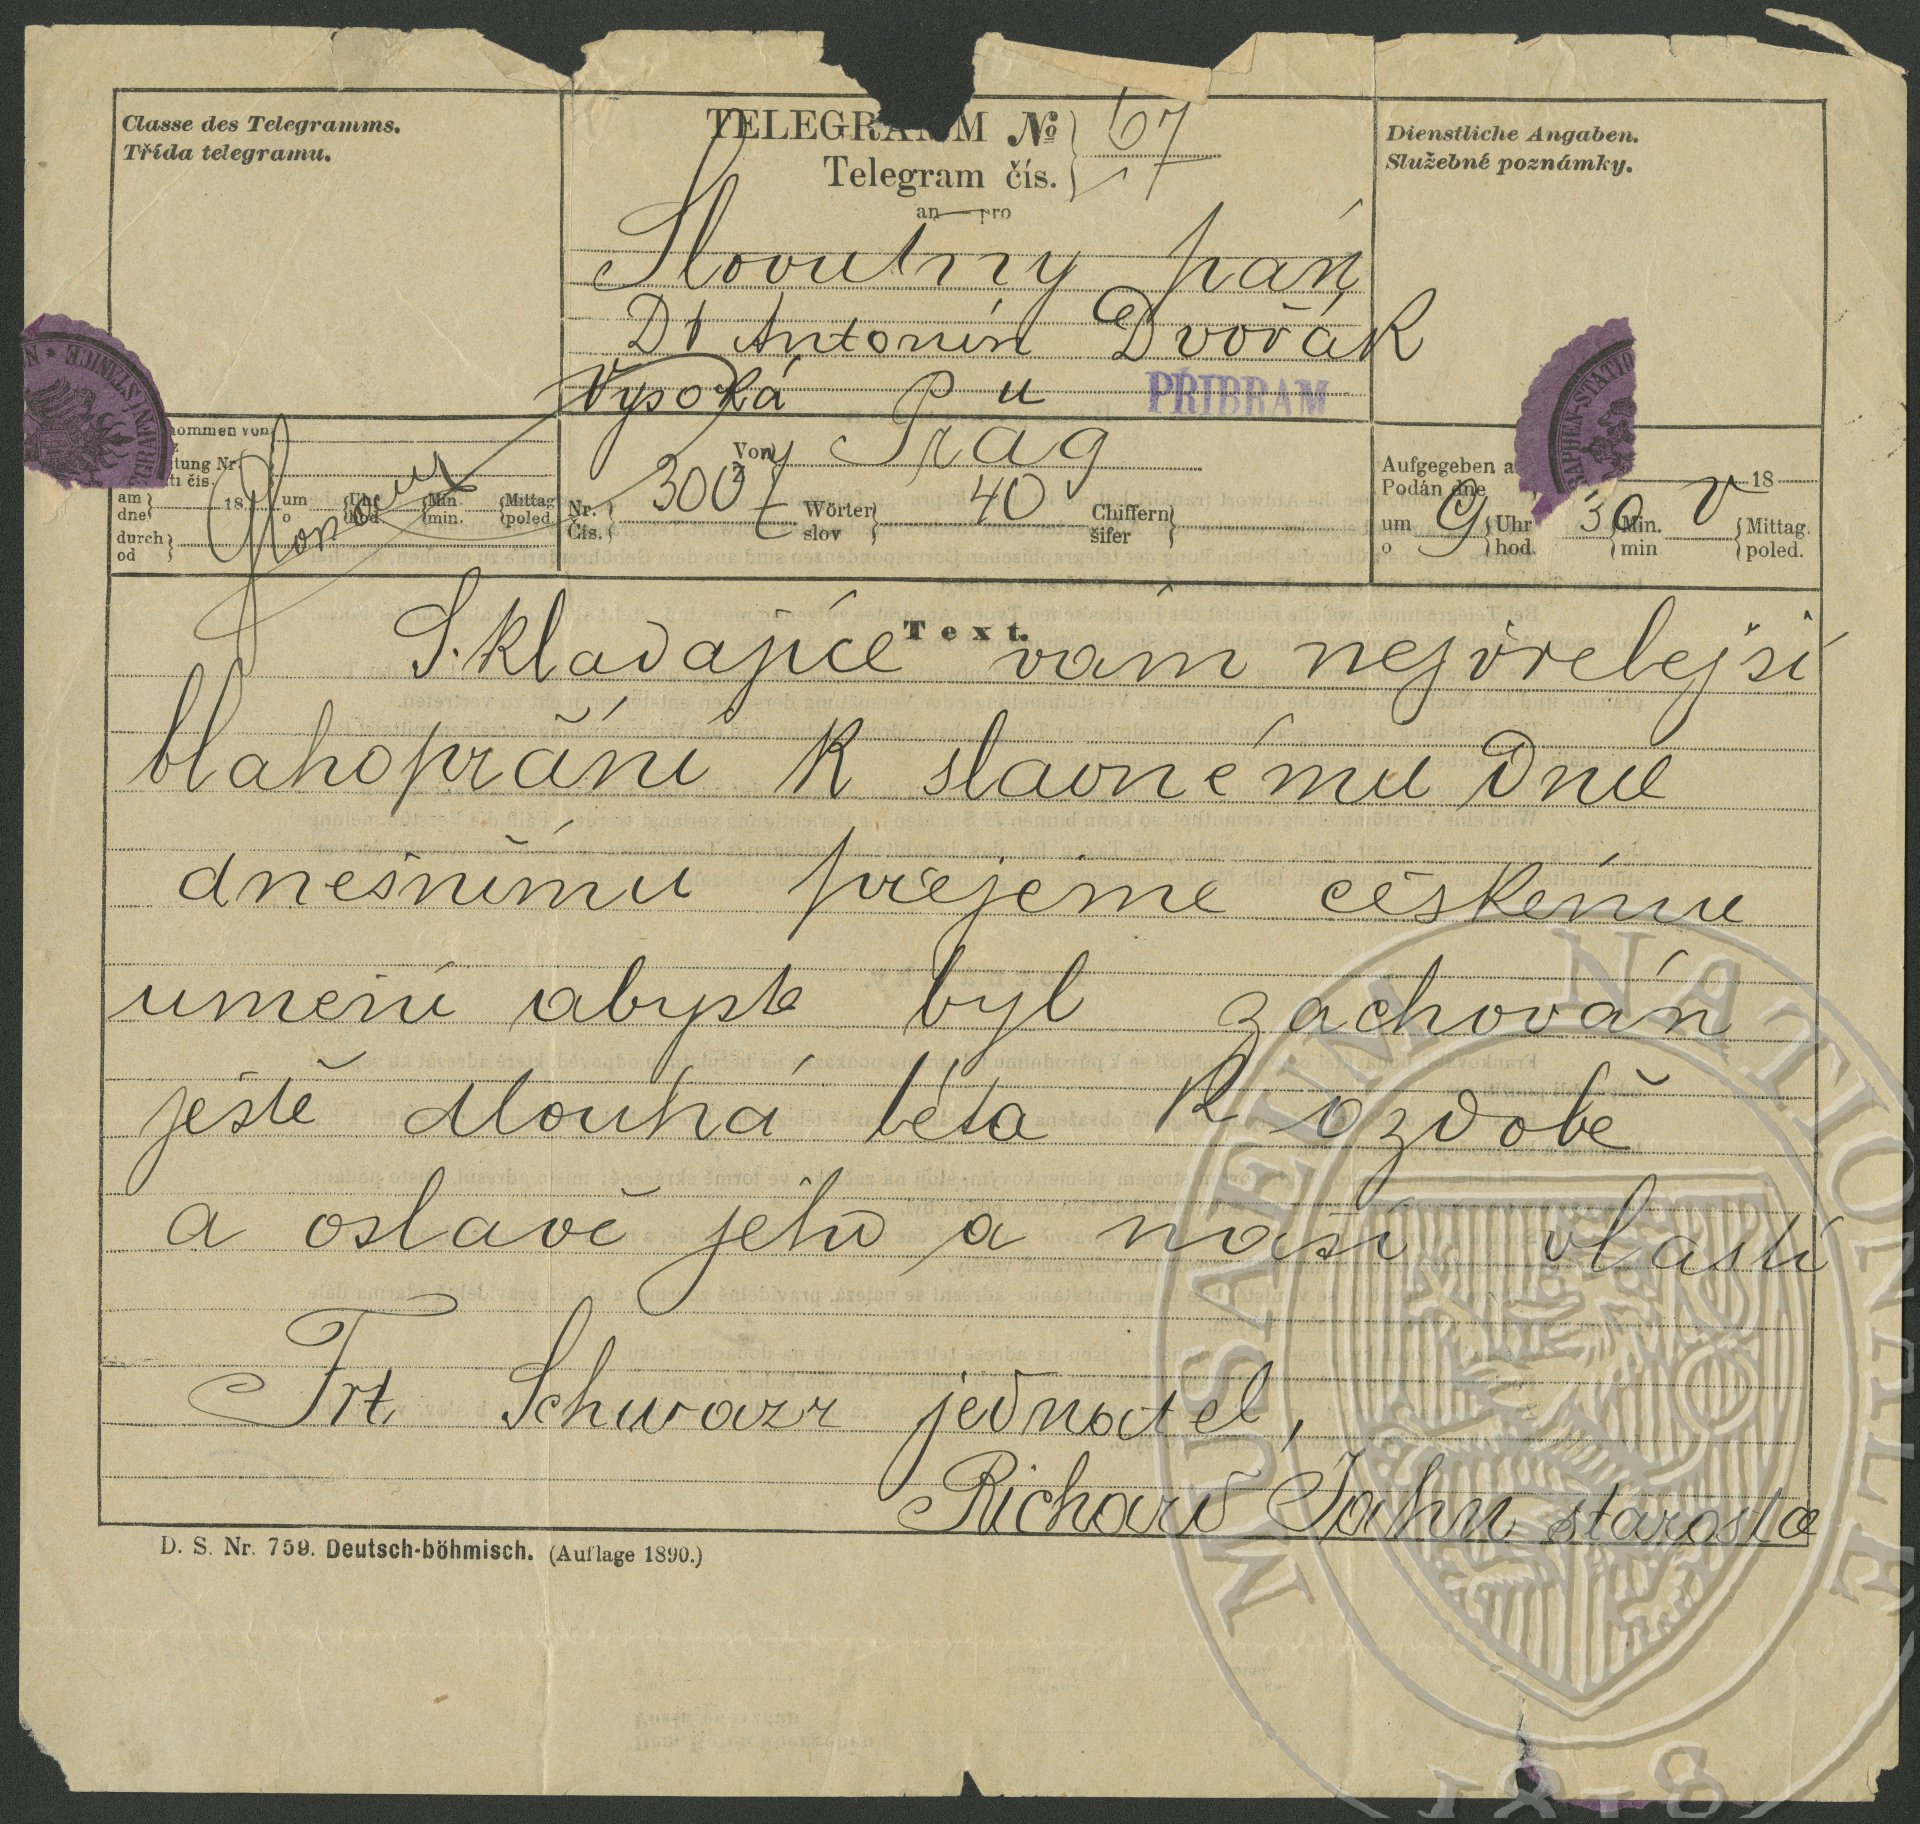 Classe des Telegramms.
Třída telegramu.
TELEGRAMM No
Telegram čís. 67
an — pro
Dienstliche Angaben.
Služebné poznámky.
Slovutny pán
Dr Antonín Dvořák
Vysoká u PŘIBRAM
Von Prag
z
Nr. Čís. 3007 Wörter slov 40 Chiffern šifer
Aufgegeben a
Podán dne 18
um o 9 Uhr hod. 30 Min. min v Mittag. poled.
nommen von
tung Nr.
ti čis.
am dne 18 um o Uhr hod. Min. min. Mittag poled.
durch od
Text.
Skladajíce vám nejvřelejsí
blahopřání k slavnému dnu
dnešnímu přejeme céskému
umění abyste byl zachován
ještě dlouhá léta k ozdobě
a oslavě jeho a naší vlasti
Frt Schwarz jednatel,
Richard Jahn starosta
D. S. Nr. 759. Deutsch-böhmisch. (Auflage 1890.)
MUSAEUM NATIONALE
1818